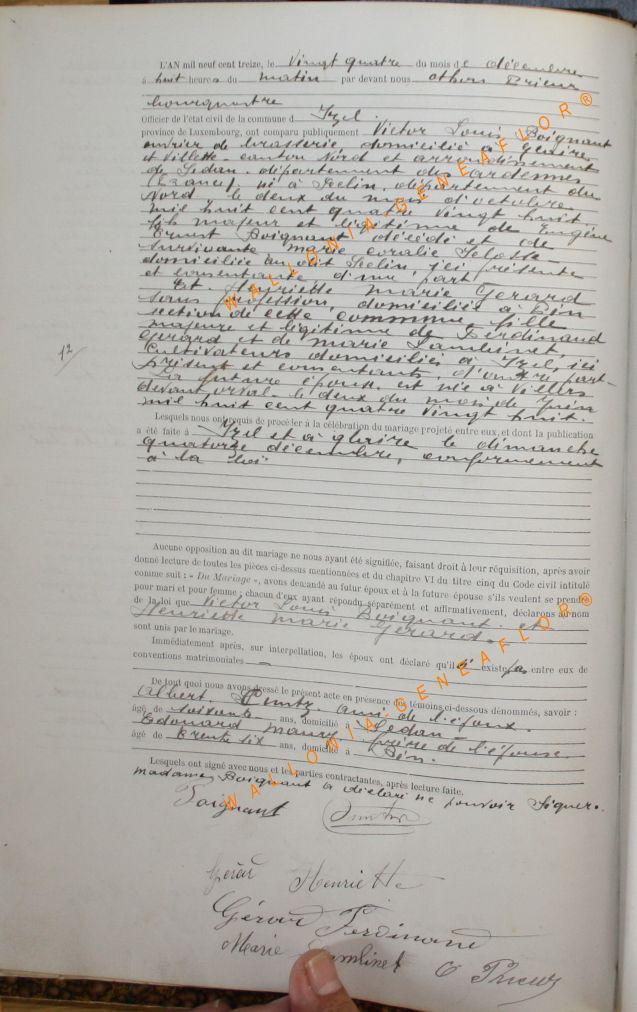 L'AN mil neuf cent treize, le Vingt quatre du mois de décembre
à huit heures du matin par devant nous Othon Prieur
bourgmestre
Officier de l'état civil de la commune d Izel
province de Luxembourg, ont comparu publiquement Victor Louis Boignant
ouvrier de brasserie, domicilié à Glaire
et Villette canton Nord et arrondissement
de Sedan, département des Ardennes
(France), né à Seclin, département du
Nord le deux du mois d'octobre
mil huit cent quatre vingt huit
fils majeur et légitime de Eugène
Ernest Boignant décédé et de
survivante marie coralie
domiciliée au dit Seclin, ici présente
et consentante d'une part
Et Henriette Marie Gerard
sans profession, domiciliée à Pin
section de cette commune, fille
majeure et légitime de Ferdinand
Gerard et de Marie Lamblinet,
cultivateurs domiciliés à Izel, ici
présents et consentants, d'autre part
La future épouse est née à Villers
devant orval le deux du mois de juin
mil huit cent quatre vingt huit.
12/
Lesquels nous ont requis de procéder à la célébration du mariage projeté entre eux, et dont la publication
a été faite à Izel et à glaire le dimanche
quatorze décembre, conformément
à la loi
Aucune opposition au dit mariage ne nous ayant été signifiée, faisant droit à leur réquisition, après avoir
donné lecture de toutes les pièces ci-dessus mentionnées et du chapitre VI du titre cinq du Code civil intitulé
comme suit : « Du Mariage », avons demandé au futur époux et à la future épouse s'ils veulent se prendre
pour mari et pour femme ; chacun d'eux ayant répondu séparément et affirmativement, déclarons au nom
de la loi que Victor Louis Boignant et
Henriette Marie Gérard.
sont unis par le mariage.
Immédiatement après, sur interpellation, les époux ont déclaré qu'il n' existe pas entre eux de
conventions matrimoniales —
De tout quoi nous avons dressé le présent acte en présence des témoins ci-dessous dénommés, savoir :
Albert ami de l'époux.
âgé de soixante ans, domicilié à Sedan
Edouard Maury frère de l'épouse
âgé de trente six ans, domicilié à Pin.
Lesquels ont signé avec nous et les parties contractantes, après lecture faite.
madame Boignant a déclaré ne pouvoir signer.
Boignant
Gérard Henriette
Gérard Ferdinand
Marie Lamblinet O Prieur
WALLONIA-GENEAFLOR®
WALLONIA-GENEAFLOR®